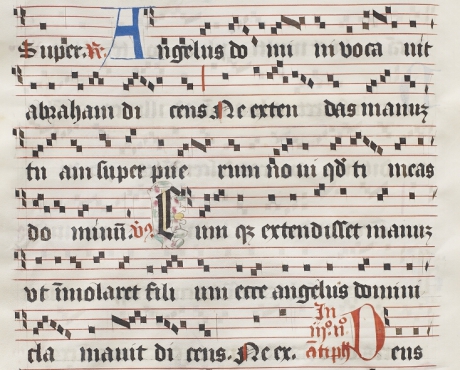 Super. R. Angelus do mi ni voca uit
abraham di cens. Ne exten das manuʒ
tu am super pue rum no ui qd ti meas
do minū. V. Cum qʒ extendisset manuʒ
vt īmolaret fili um ecce angelus domini
cla mauit di cens. Ne ex. In iijº nº antiph Deus